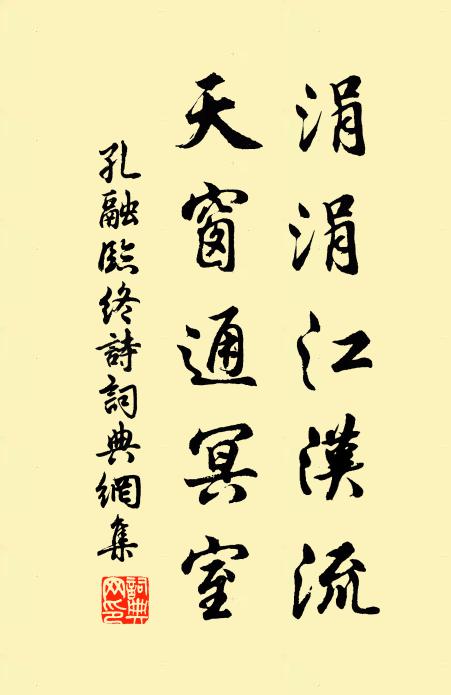 涓涓江漢流
天窗通冥室
孔融臨終詩詞典網集